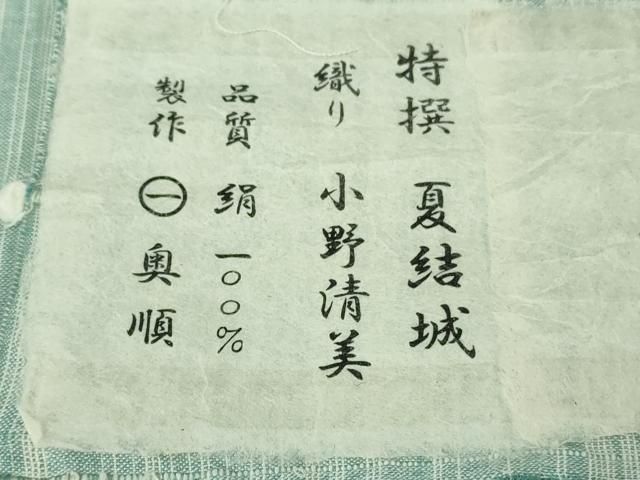 特撰 夏結城
織り 小野清美
品質 絹 一〇〇%
製作 ㊀ 奥順